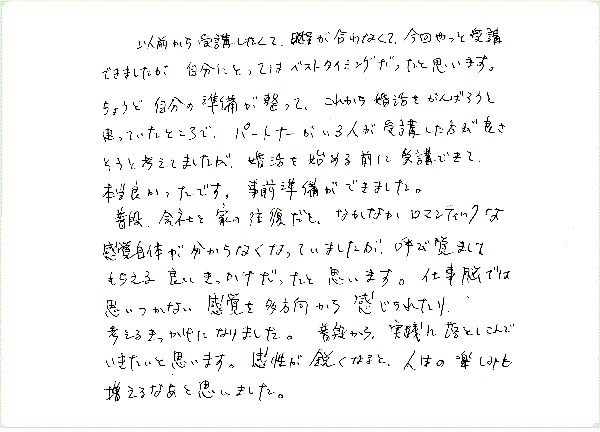 以前から受講したくて、日程が合わなくて、今回やっと受講
できましたが、自分にとってはベストタイミングだったと思います。
ちょうど自分の準備が整って、これから婚活をがんばろうと
思っていたところで、パートナーがいる人が受講した方が良さ
そうと考えてましたが、婚活を始める前に受講できて、
本当良かったです。事前準備ができました。
普段、会社と家の往復だと、なかなかロマンティックな
感覚自体が分からなくなっていましたが、呼び覚まして
もらえる良いきっかけだったと思います。仕事脳では
思いつかない感覚を多方向から感じられたり、
考えるきっかけになりました。普段から、実践に落としこんで
いきたいと思います。感性が鋭くなると、人生の楽しみも
増えるなあと思いました。